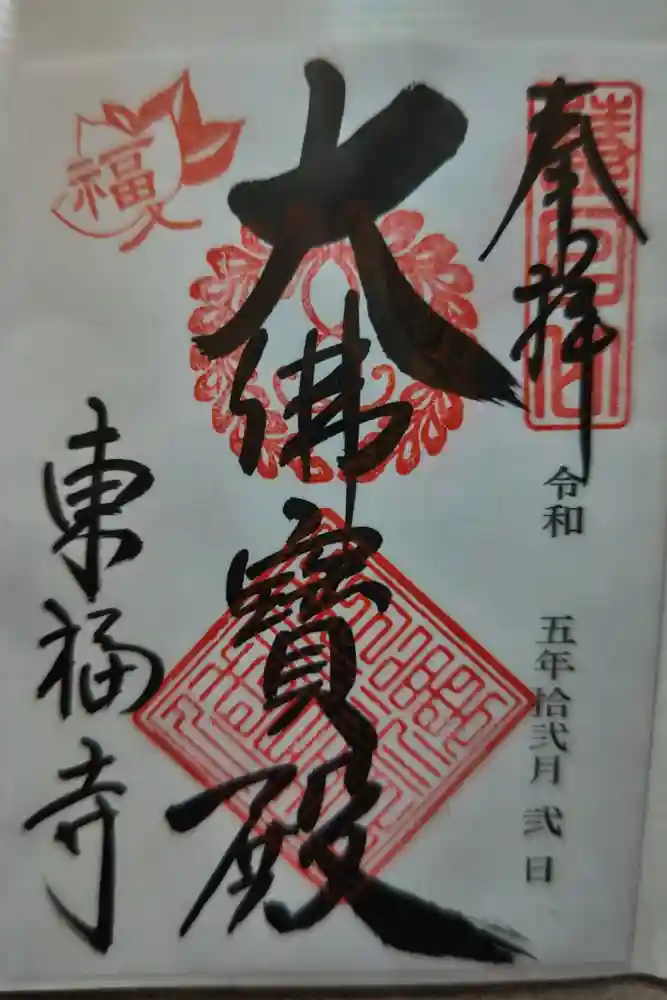 奉拝
令和 五年拾弐月 弐日
大佛寳殿
東福寺
福